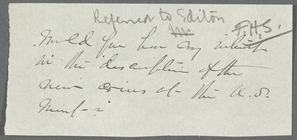 Referred to Editor
F.H.S.
Would you have any interest
in the description of the
new coins at the U.S.
Mint -